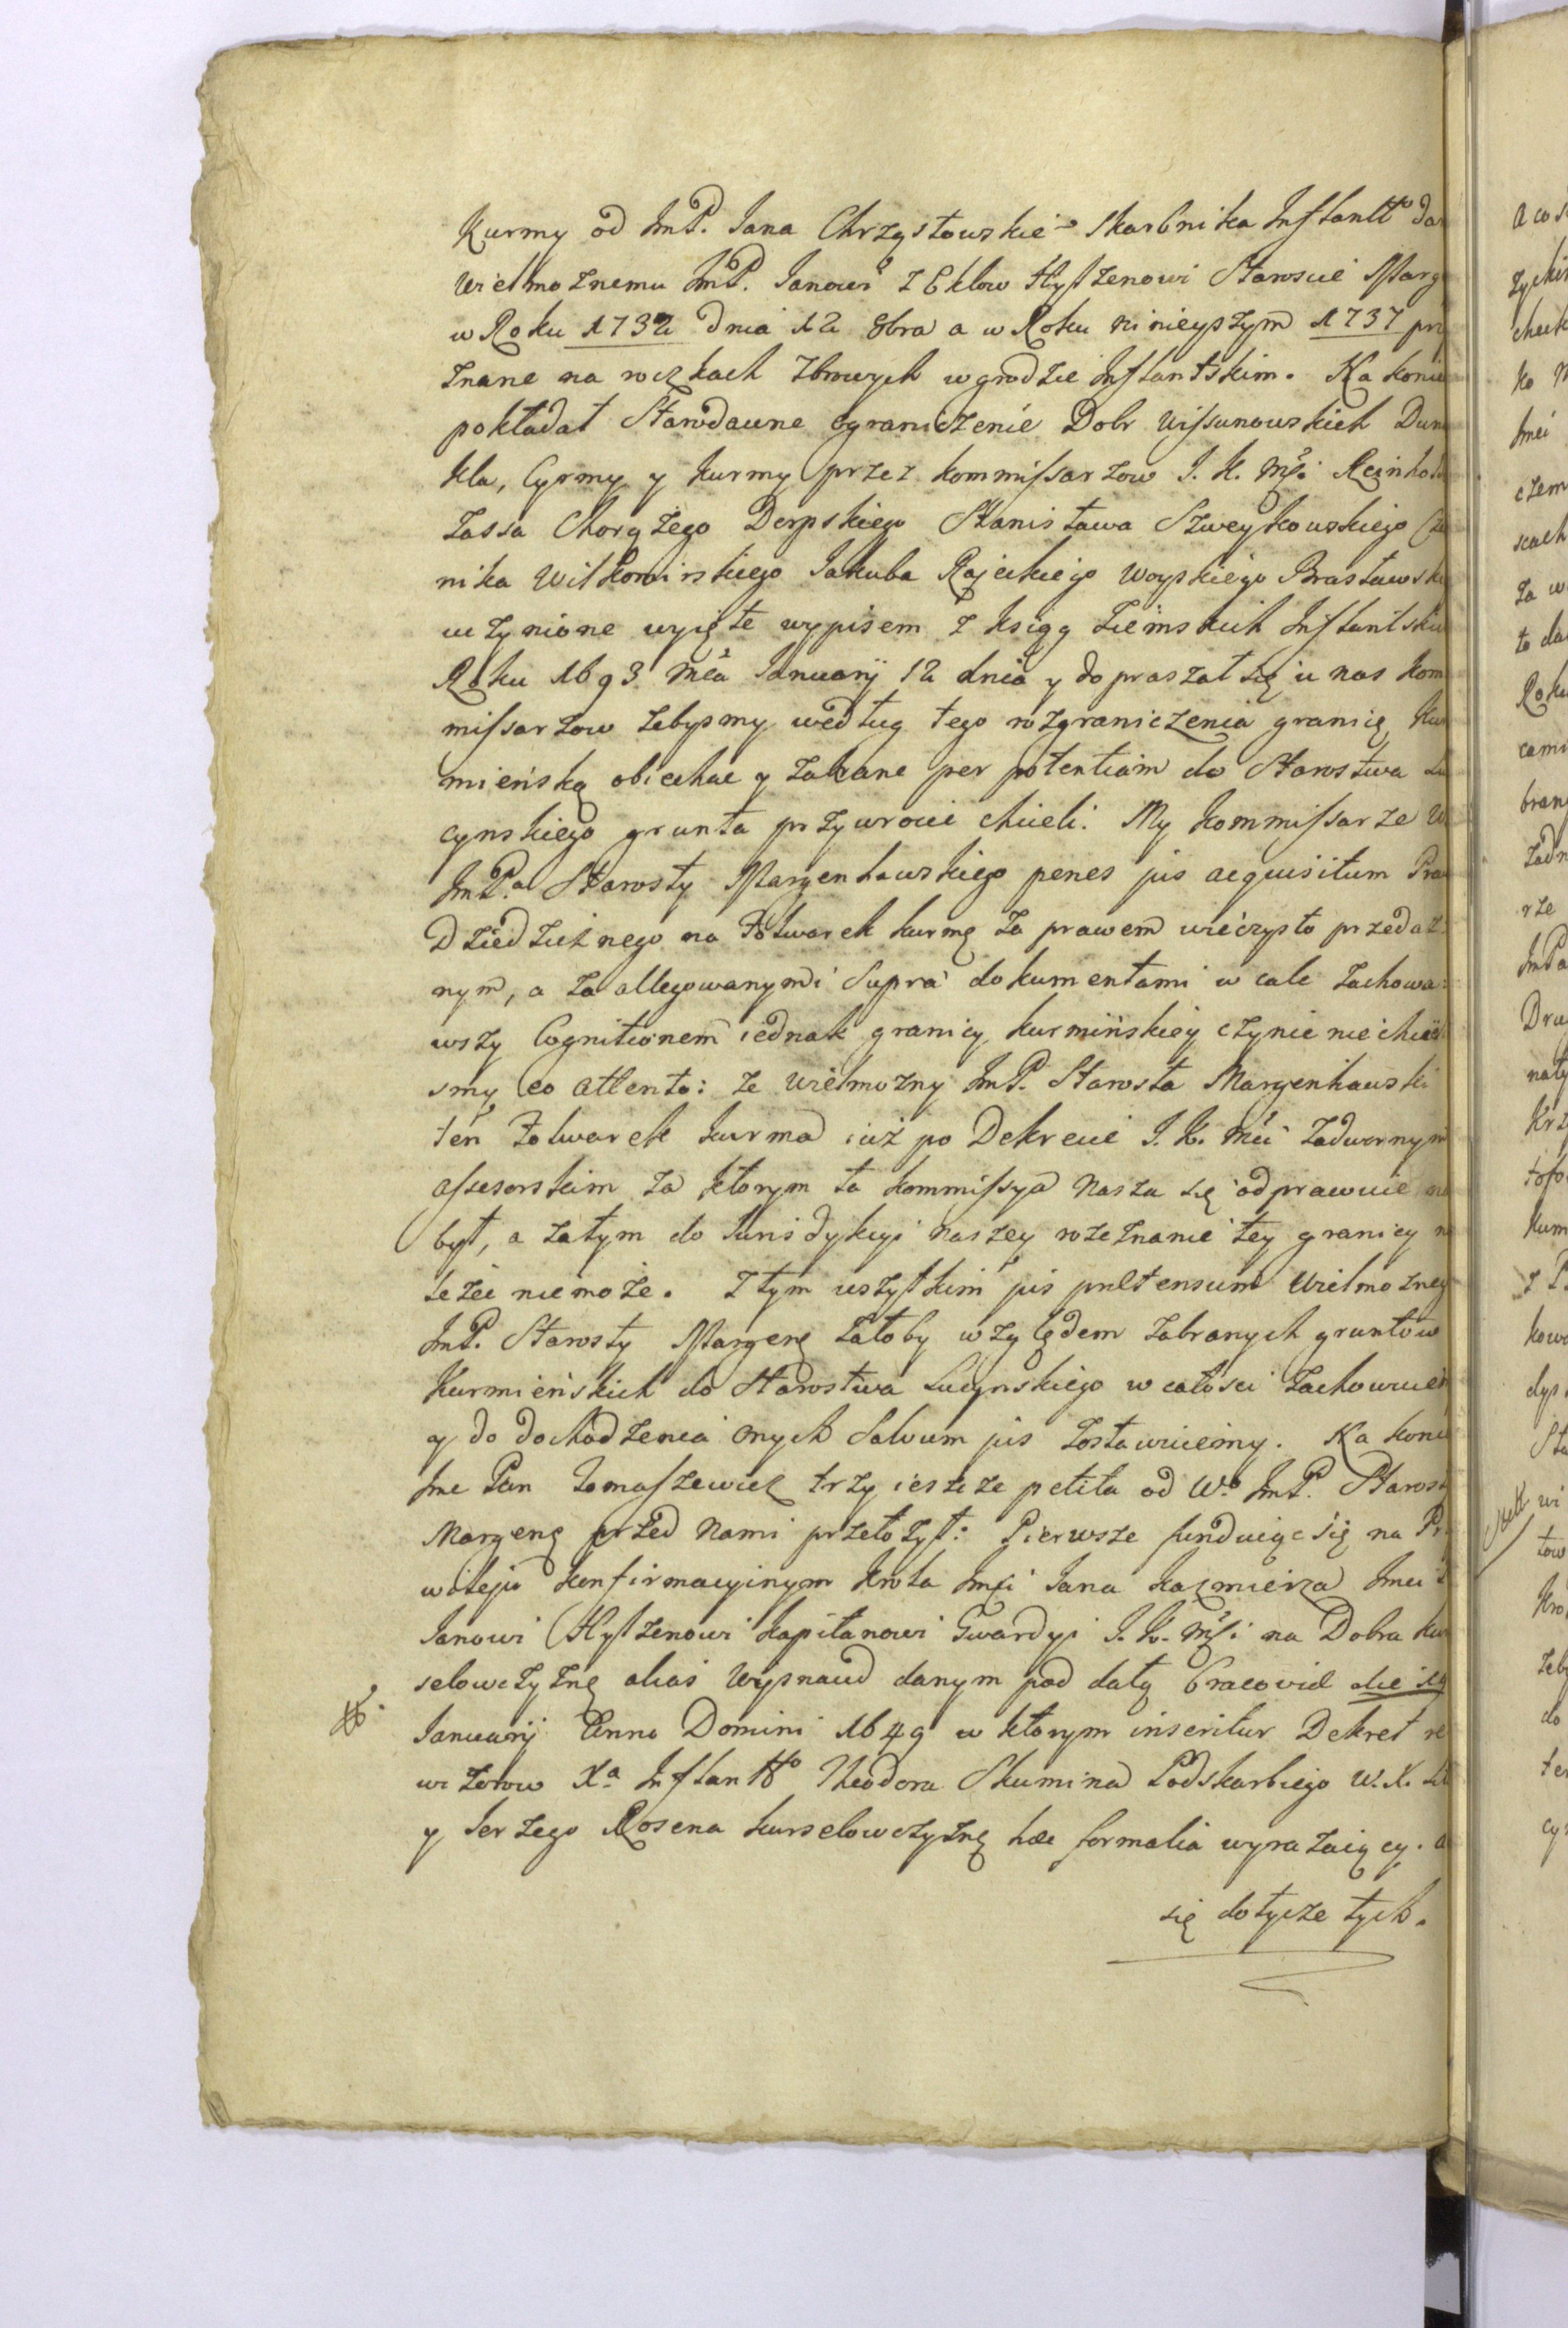 Kurmy od ImP. Jana Chrzystowskie͠o Skarbnika Inflantto dan
Wielmożnemu ImP. Janowi z Eklow Hylzenowi Staroscie Marg
w Roku 1732 dnia 12 8bra a w Roku ninieyszym 1737 prz
znane na roczkach 7browych w grodzie Inflantskim. Na koniec
pokładał Starodawne ograniczenie Dobr Wissunowskich Dun
kla, Cyrmy y Kurmy przez kommissarzow J. K. Mći Reinholda
Zassa Chorążego Derpskiego Stanisława Szweykowskiego Cze
nika Wiłkomirskiego Jakuba Rajeckiego Woyskiego Brasławski
uczynione wyięte wypisem z ksiąg Ziemskich Inflantskich
Roku 1693 mća Januarij 12 dnia y dopraszał się u nas kom
missarzow żebysmy według tego rozgraniczenia granicę kur
mieńską obiechać y zabrane per potentiam do Starostwa Lu
cynskiego grunta przywrocic chcieli. My kommissarze W
ImPa Starosty Margenhauskiego penes jus acquisitum Praw
Dziedzicznego na Folwarek kurmę za prawem wieczysto przedaż:
nym, a za allegowanymi supra dokumentami w cale zachowa:
wszy Cognitionem iednak granicy kurmińskiey czynic nie chcieli
smy eo attento: że Wielmożny ImP. Starosta Margenhauski
ten Folwarek kurma iuż po Dekrecie J. K. Mći Zadwornym
assesorskim za ktorym ta kommissya nasza się odprawuie na
był, a zatym do Jurisdykcyi naszey rozeznanie tey granicy n
leżeć nie może. Z tym wszytkim jus prætensum Wielmożneg
ImP. Starosty Margenę załoby względem zabranych gruntow
Kurmieńskich do Starostwa Lucynskiego w całosci zachowuiem
y do dochodzenia onych salvum jus zostawuiemy. Na konie
Jme Pan Tomaszewicz trzy ieszcze petita od Wo ImP. Starost
Margenę przed nami przełożył: Pierwsze funduiąc się na Pr
wileju konfirmacyinym krola Jmći Jana Kazmierza Jmci
Janowi Hylzenowi kapitanowi Gwardyi J. K. Mći na Dobra kur
selowczyznę alias Wysnaud danym pod datą Cracoviæ die 19
Januarij Anno Domini 1649 w ktorym inseritur Dekret re
wizorow Xa Inflantto Theodora Skumina Podskarbiego W. X. Lit
y Jerzego Rosena kurselowczyznę hæc formalia wyrażaiący. a
się dotycze tych.